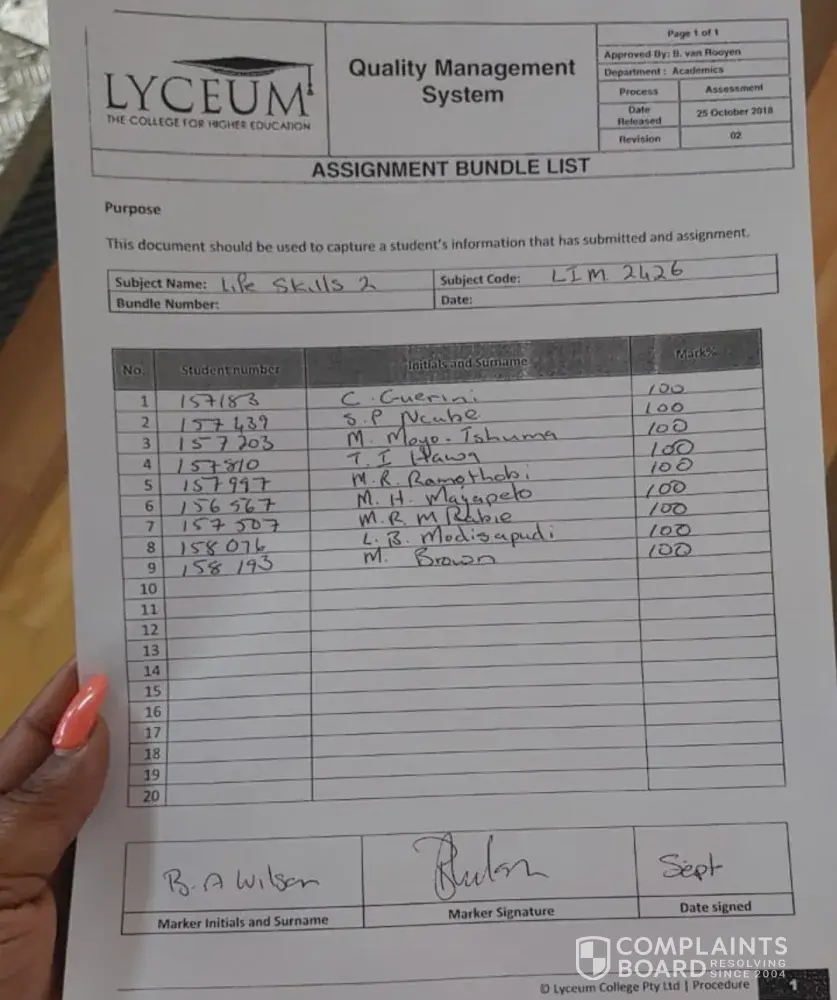 LYCEUM
THE COLLEGE FOR HIGHER EDUCATION
Quality Management
System
Page 1 of 1
Approved By: B. van Rooyen
Department : Academics
Process Assessment
Date Released 25 October 2018
Revision 02
ASSIGNMENT BUNDLE LIST
Purpose
This document should be used to capture a student's information that has submitted and assignment.
Subject Name: Life Skills 2 Subject Code: LIM 2426
Bundle Number: Date:
No. Student number Initials and Surname Mark%
1 157183 C. Guerini 100
2 157439 S.P Ncube 100
3 157203 M. Moyo-Tshuma 100
4 157810 T. I 100
5 157997 M.R. Ramothobi 100
6 156567 M. H. Mayapelo 100
7 157507 M.R M Rabie 100
8 158076 L. B. Modisapudi 100
9 158193 M. Brown 100
10
11
12
13
14
15
16
17
18
19
20
B. A Wilson Sept
Marker Initials and Surname Marker Signature Date signed
COMPLAINTS
BOARD RESOLVING SINCE 2004
© Lyceum College Pty Ltd | Procedure 1